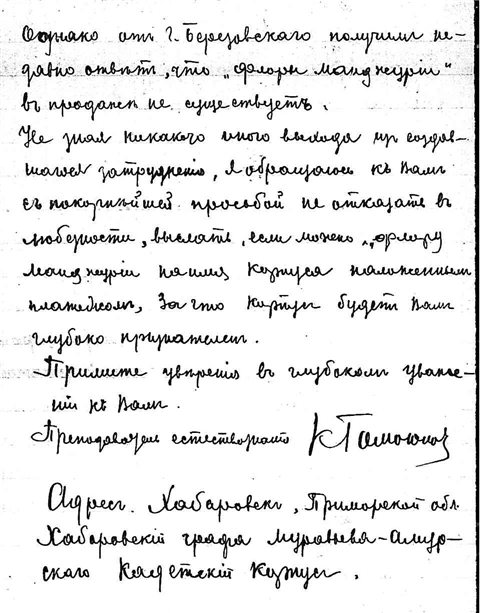 Однако отъ г. Березовскаго получили не-
давно отвѣтъ, что „флоры Манджуріи“
въ продажѣ не существуетъ.
Не зная никакого иного выхода изъ создав-
шагося затрудненія, я обращаюсь къ Вамъ
съ покорнѣйшей просьбой не отказать въ
любезности, выслать, если можно, „флору
Манджуріи на имя Корпуса наложеннымъ
платежомъ, За что Корпусъ будетъ Вамъ
глубоко признателенъ.
Примите увѣренія въ глубокомъ уваже-
ніи къ Вамъ.
Преподаватель естествознанія
Адресъ. Хабаровскъ, Приморской обл.
Хабаровскій графа Муравьева-Амур-
скаго Кадетскій Корпусъ.